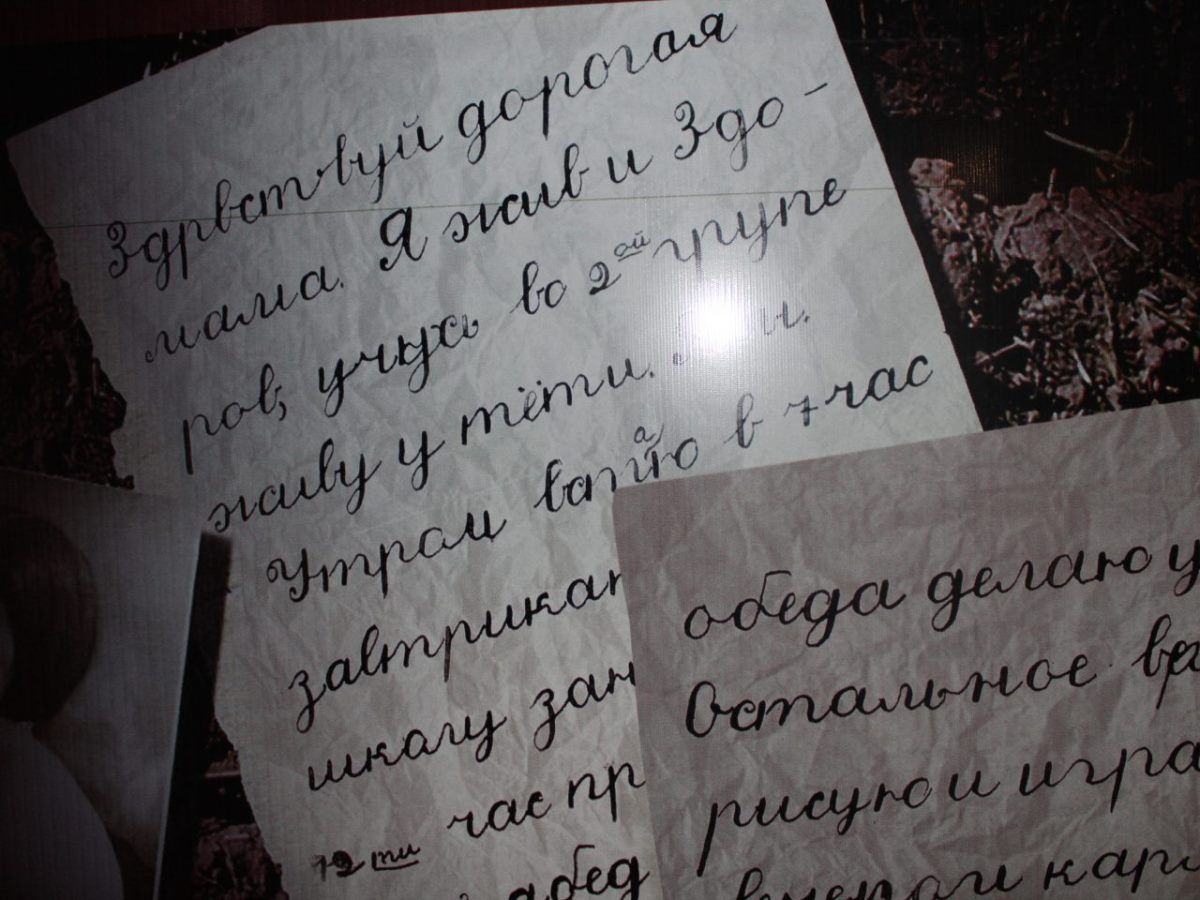 Здрвствуй дорогая
мама. Я жив и Здо -
ров, учусь во 2ой групе
живу у тёти.
Утром встаю в 7 час
завтрикаю
школу зан
12ти час пр
абед
обеда делаю у
Остальное вре
рисую и игра